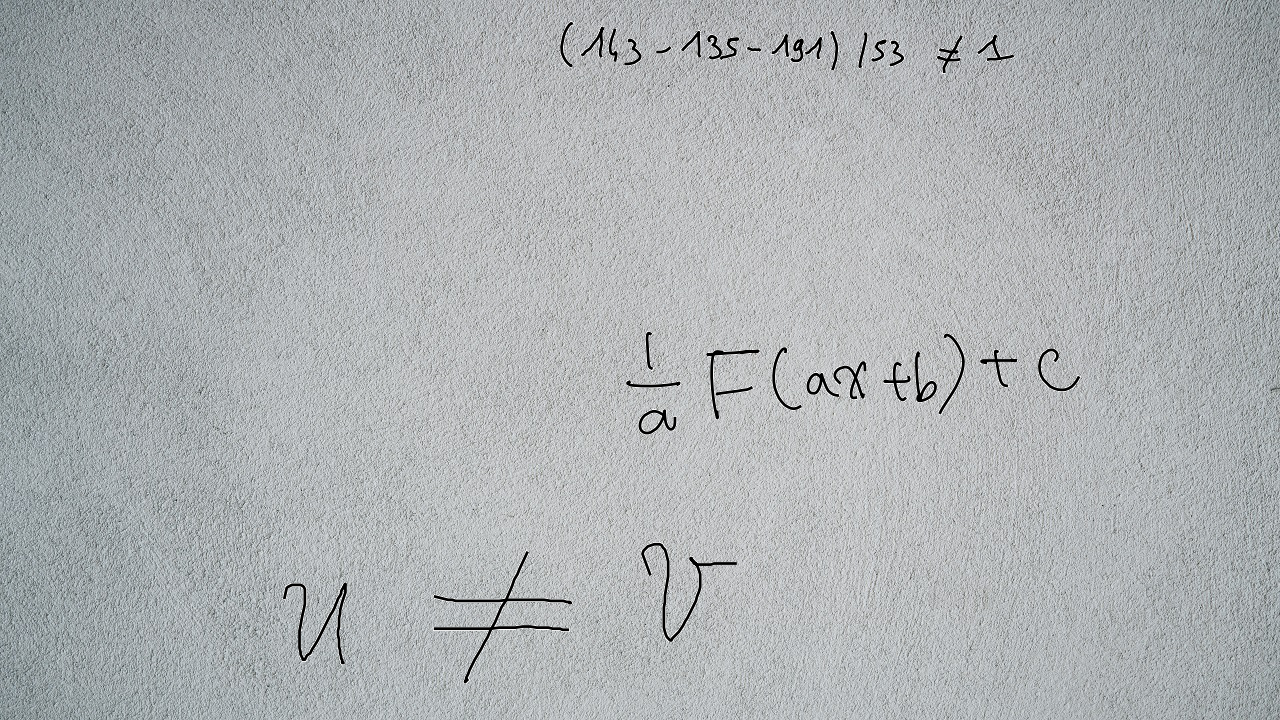 (143 - 135 - 191) / 53 ≠ 1
\frac{1}{a} F(ax+b) + c
u ≠ v